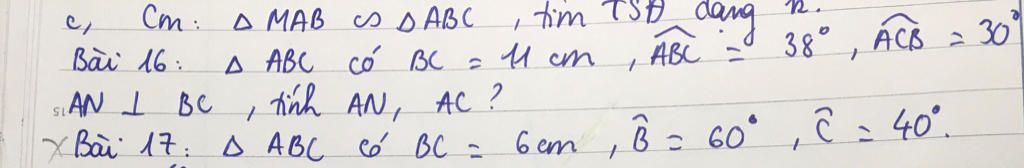 c, Cm: Δ MAB ∽ Δ ABC , tìm TSĐ dạng
Bài 16: Δ ABC có BC = 11 cm , \widehat{ABC} = 38° , \widehat{ACB} = 30°
AN ⊥ BC , tính AN, AC ?
X Bài 17: Δ ABC có BC = 6cm , B̂ = 60° , Ĉ = 40°.